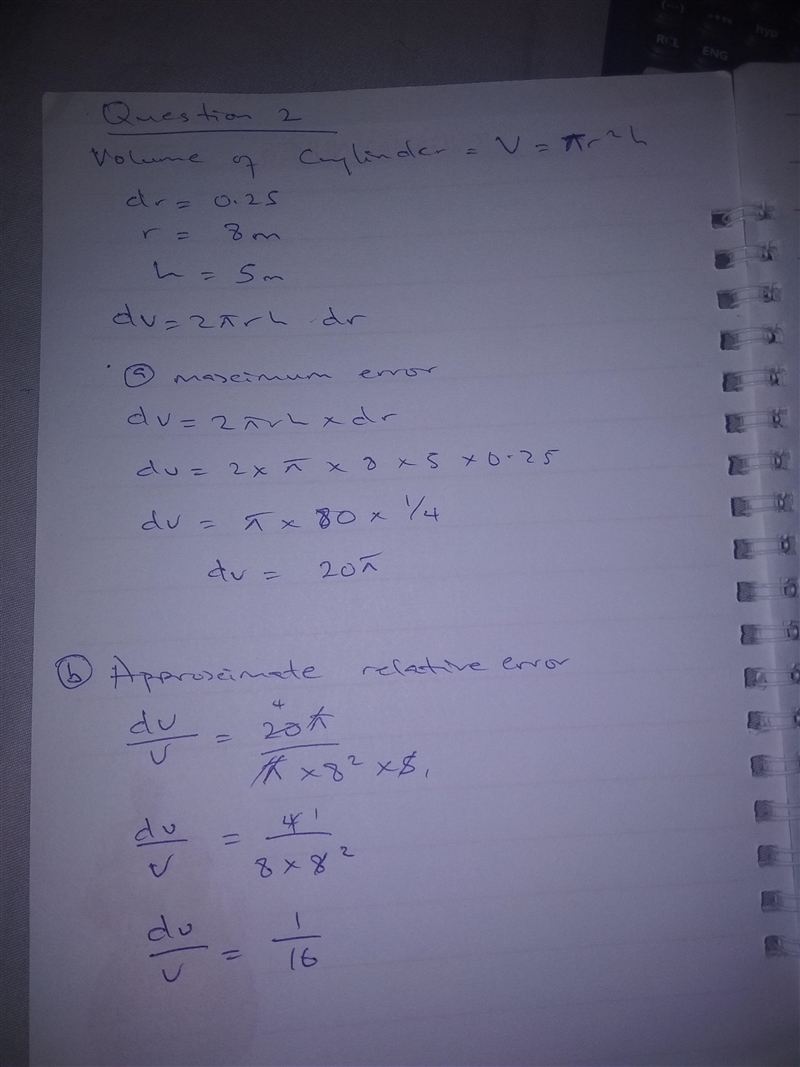 (...)
RCL ENG hyp
Question 2
Volume of Cuylinder = V = πr²h
dr = 0.25
r = 8m
h = 5m
dv = 2πrh dr
ⓐ maximum error
dv = 2πrh × dr
dv = 2 × π × 8 × 5 × 0.25
dv = π × 80 × 1/4
dv = 20π
ⓑ Approximate relative error
4
dv/v = 20π / π × 8² × 5 1
dv/v = 4 1 / 8 × 8 2
dv/v = 1/16